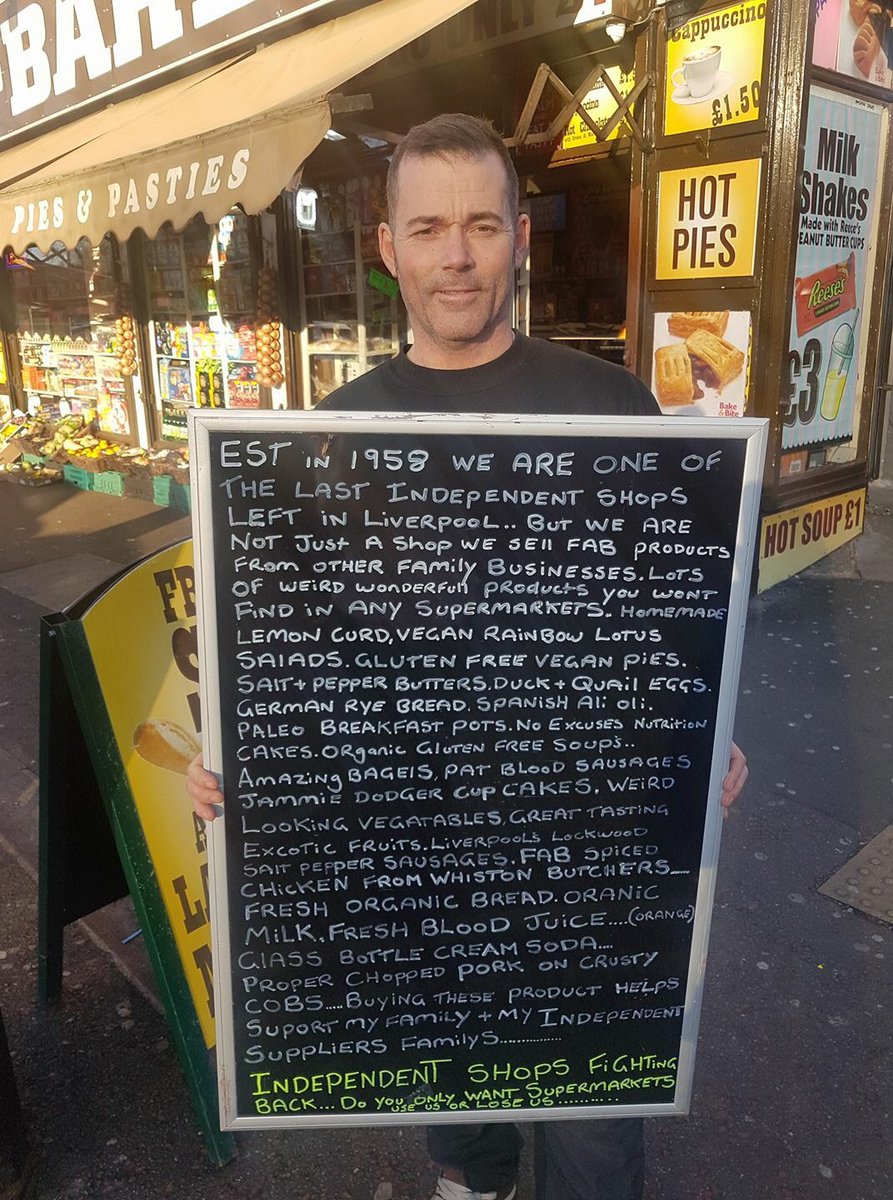 BAKE
PIES & PASTIES
Cappuccino
£1.50
HOT
PIES
Milk
Shakes
Made with Reese's
PEANUT BUTTER CUPS
Reese's
£3
Bake &
Bite
HOT SOUP £1
EST IN 1958 WE ARE ONE OF
THE LAST INDEPENDENT SHOPS
LEFT IN LIVERPOOL.. BUT WE ARE
NOT JUST A SHOP WE SELL FAB PRODUCTS
FROM OTHER FAMILY BUSINESSES. LOTS
OF WEIRD WONDERFULL PRODUCTS YOU WONT
FIND IN ANY SUPERMARKETS.. HOMEMADE
LEMON CURD, VEGAN RAINBOW LOTUS
SALADS. GLUTEN FREE VEGAN PIES.
SALT + PEPPER BUTTERS. DUCK + QUAIL EGGS.
GERMAN RYE BREAD. SPANISH ALI OLI.
PALEO BREAKFAST POTS. NO EXCUSES NUTRITION
CAKES. ORGANIC GLUTEN FREE SOUP'S..
AMAZING BAGELS, PAT BLOOD SAUSAGES
JAMMIE DODGER CUP CAKES. WEIRD
LOOKING VEGATABLES, GREAT TASTING
EXCOTIC FRUITS. LIVERPOOL'S LOCKWOOD
SALT PEPPER SAUSAGES. FAB SPICED
CHICKEN FROM WHISTON BUTCHERS....
FRESH ORGANIC BREAD. ORANIC
MILK. FRESH BLOOD JUICE....(ORANGE)
GLASS BOTTLE CREAM SODA....
PROPER CHOPPED PORK ON CRUSTY
COBS.... BUYING THESE PRODUCT HELPS
SUPORT MY FAMILY + MY INDEPENDENT
SUPPLIERS FAMILYS...............
INDEPENDENT SHOPS FIGHTING
BACK... DO YOU ONLY WANT SUPERMARKETS
USE US OR LOSE US ..........